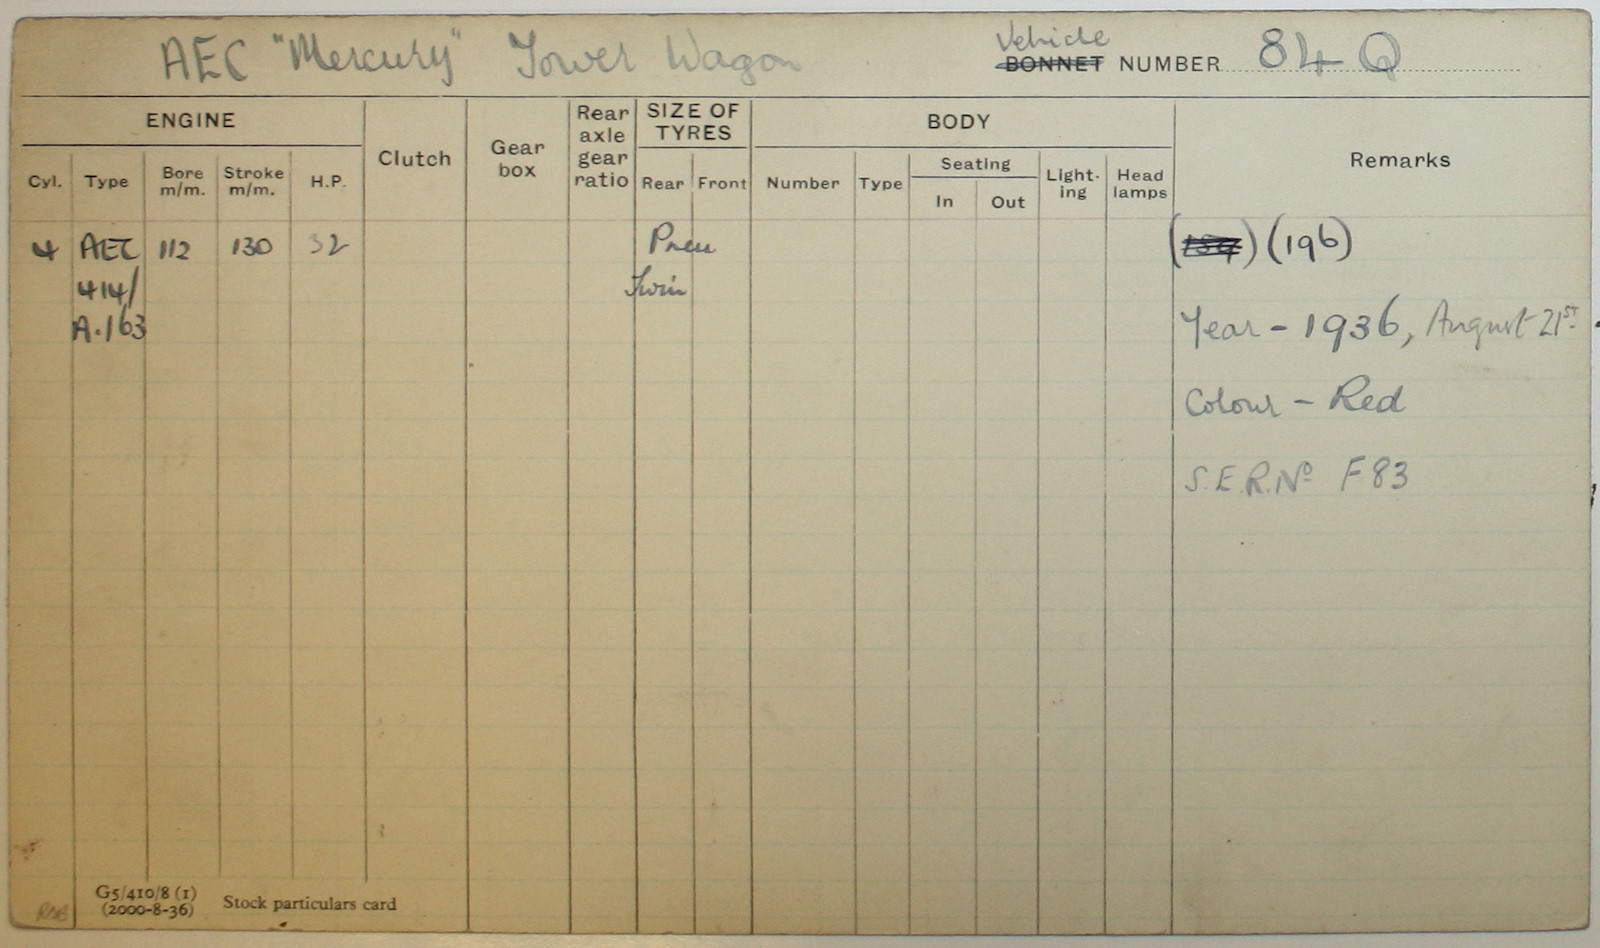 AEC "Mercury" Tower Wagon
Vehicle
BONNET NUMBER 84 Q
ENGINE
Cyl.
Type
Bore
m/m.
Stroke
m/m.
H.P.
Clutch
Gear
box
Rear
axle
gear
ratio
SIZE OF
TYRES
Rear
Front
BODY
Number
Type
Seating
In
Out
Light-
ing
Head
lamps
Remarks
4 AEC 112 130 32 Pneu ( ) (196)
414/ Twin
A.163 Year - 1936, August 21st.
Colour - Red
S.E.R.No F83
G5/410/8 (1)
(2000-8-36)
Stock particulars card